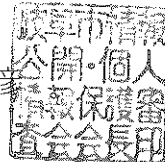 取手市情報
公開・個人
情報保護審
査会会長印